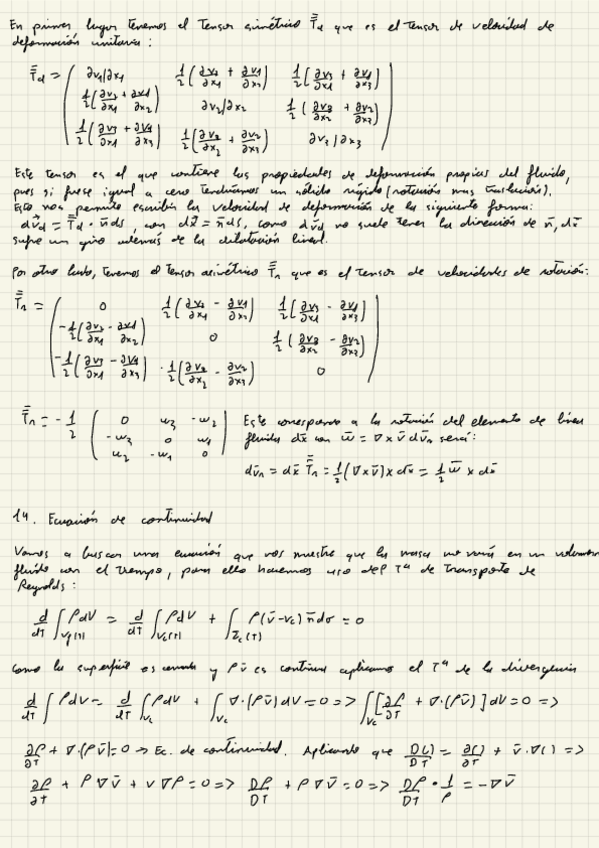 En primer lugar tenemos el Tensor simétrico T̿d que es el tensor de velocidad de
deformación unitaria:
T̿d = ( ∂v₁/∂x₁   1/2(∂v₂/∂x₁ + ∂v₁/∂x₂)   1/2(∂v₃/∂x₁ + ∂v₁/∂x₃)
1/2(∂v₂/∂x₁ + ∂v₁/∂x₂)   ∂v₂/∂x₂   1/2(∂v₃/∂x₂ + ∂v₂/∂x₃)
1/2(∂v₃/∂x₁ + ∂v₁/∂x₃)   1/2(∂v₃/∂x₂ + ∂v₂/∂x₃)   ∂v₃/∂x₃ )
Este tensor es el que contiene las propiedades de deformación propias del fluido,
pues si fuese igual a cero tendríamos un sólido rígido (rotación mas traslación).
Esto nos permite escribir la velocidad de deformación de la siguiente forma:
dv̄d = T̿d · n̄ds, con dx̄ = n̄ds, como dv̄d no suele tener la dirección de n̄, dx̄
sufre un giro además de la dilatación lineal.
Por otro lado, tenemos el tensor asimétrico T̿n que es el tensor de velocidades de rotación:
T̿n = ( 0   1/2(∂v₂/∂x₁ - ∂v₁/∂x₂)   1/2(∂v₃/∂x₁ - ∂v₁/∂x₃)
-1/2(∂v₂/∂x₁ - ∂v₁/∂x₂)   0   1/2(∂v₃/∂x₂ - ∂v₂/∂x₃)
-1/2(∂v₃/∂x₁ - ∂v₁/∂x₃)   -1/2(∂v₃/∂x₂ - ∂v₂/∂x₃)   0 )
T̿n = -1/2 ( 0   w₃   -w₂   Este corresponde a la rotación del elemento de línea
-w₃   0   w₁   fluida dx̄ con w̄ = ∇ × v̄ dv̄n será:
w₂   -w₁   0 )   dv̄n = dx̄ T̿n = 1/2(∇ × v̄) × dx̄ = 1/2 w̄ × dx̄
14. Ecuación de continuidad
Vamos a buscar una ecuación que nos muestre que la masa no varía en un volumen
fluido con el tiempo, para ello hacemos uso del Tᵃ de Transporte de
Reynolds:
d/dT ∫Vf(T) ρdV = d/dT ∫Vc(T) ρdV + ∫Σc(T) ρ(v̄-v̄c) n̄dσ = 0
Como la superficie es cerrada y ρv̄ es continua aplicamos el Tᵃ de la divergencia
d/dT ∫ ρdV = d/dT ∫Vc ρdV + ∫Vc ∇·(ρv̄) dV = 0 => ∫Vc [∂ρ/∂T + ∇·(ρv̄)] dV = 0 =>
∂ρ/∂T + ∇·(ρv̄) = 0 → Ec. de continuidad. Aplicando que D()/DT = ∂()/∂T + v̄·∇() =>
∂ρ/∂T + ρ∇v̄ + v∇ρ = 0 => Dρ/DT + ρ∇v̄ = 0 => Dρ/DT · 1/ρ = -∇v̄